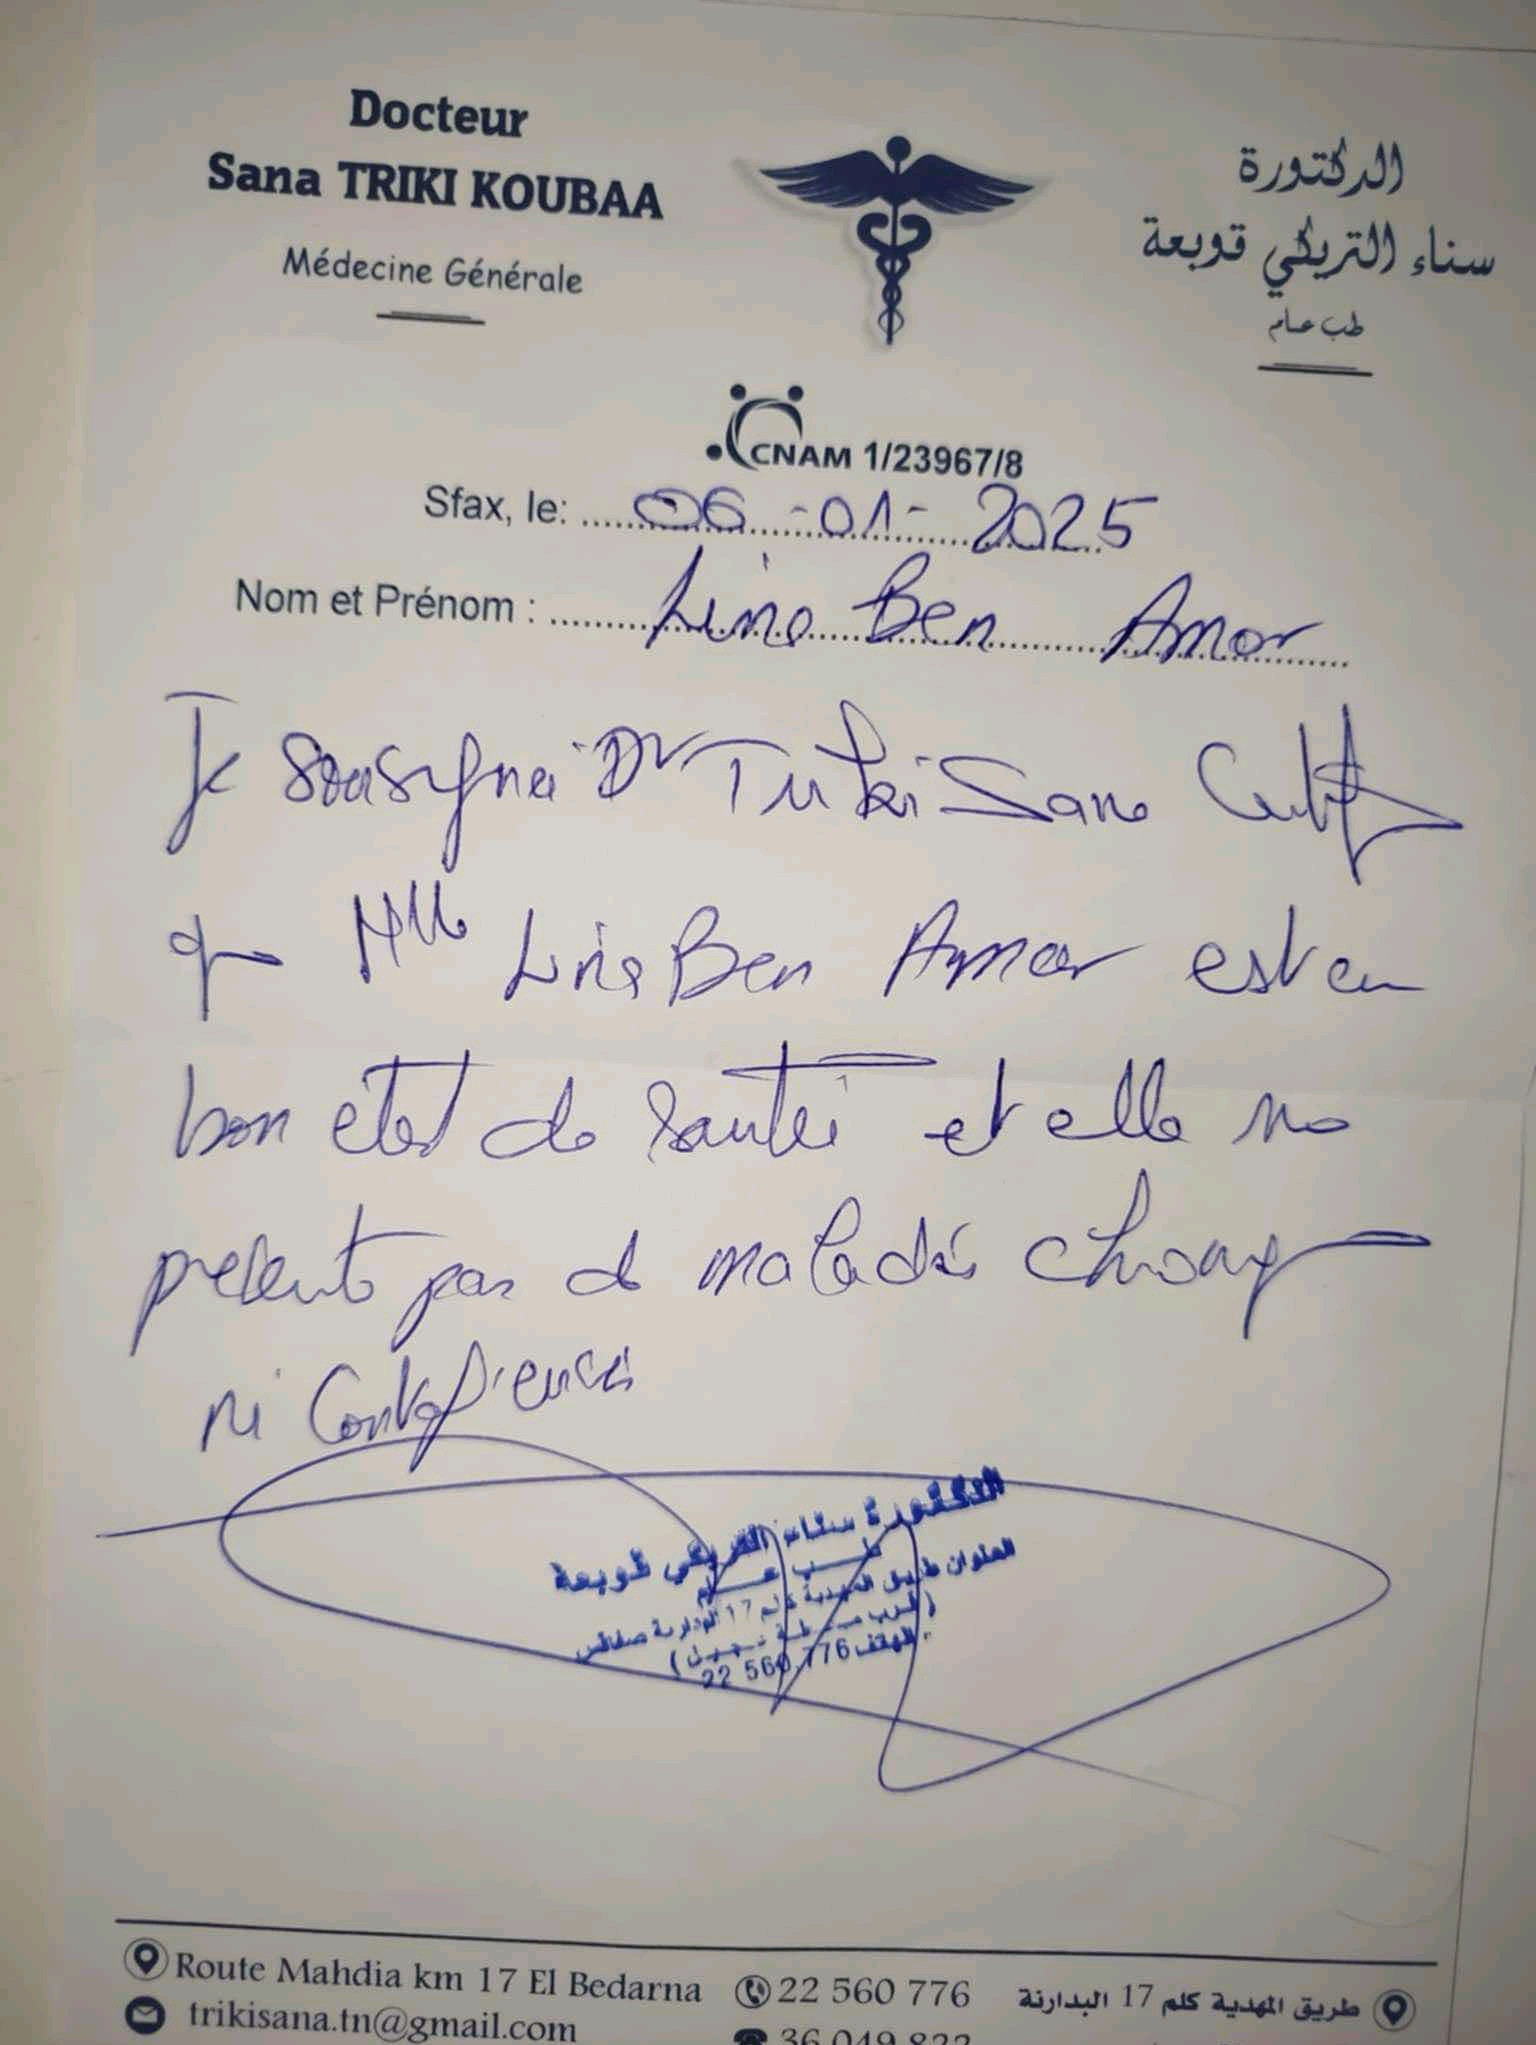 Docteur
Sana TRIKI KOUBAA
Médecine Générale
الدكتورة
سناء التريكي قوبعة
طب عام
CNAM 1/23967/8
Sfax, le: 06-01-2025
Nom et Prénom : Lina Ben Amor
Je soussigné Dr Triki Sana Certifie
que Mlle Lina Ben Amor est en
bon état de santé et elle ne
présente pas de maladies chronique
ni Contagieuses
الدكتورة سناء التريكي قوبعة
طب عام
العنوان طريق المهدية كلم 17 البدارنة صفاقس
الهاتف 22 560 776
Route Mahdia km 17 El Bedarna
22 560 776
طريق المهدية كلم 17 البدارنة
trikisana.tn@gmail.com
36 049 822